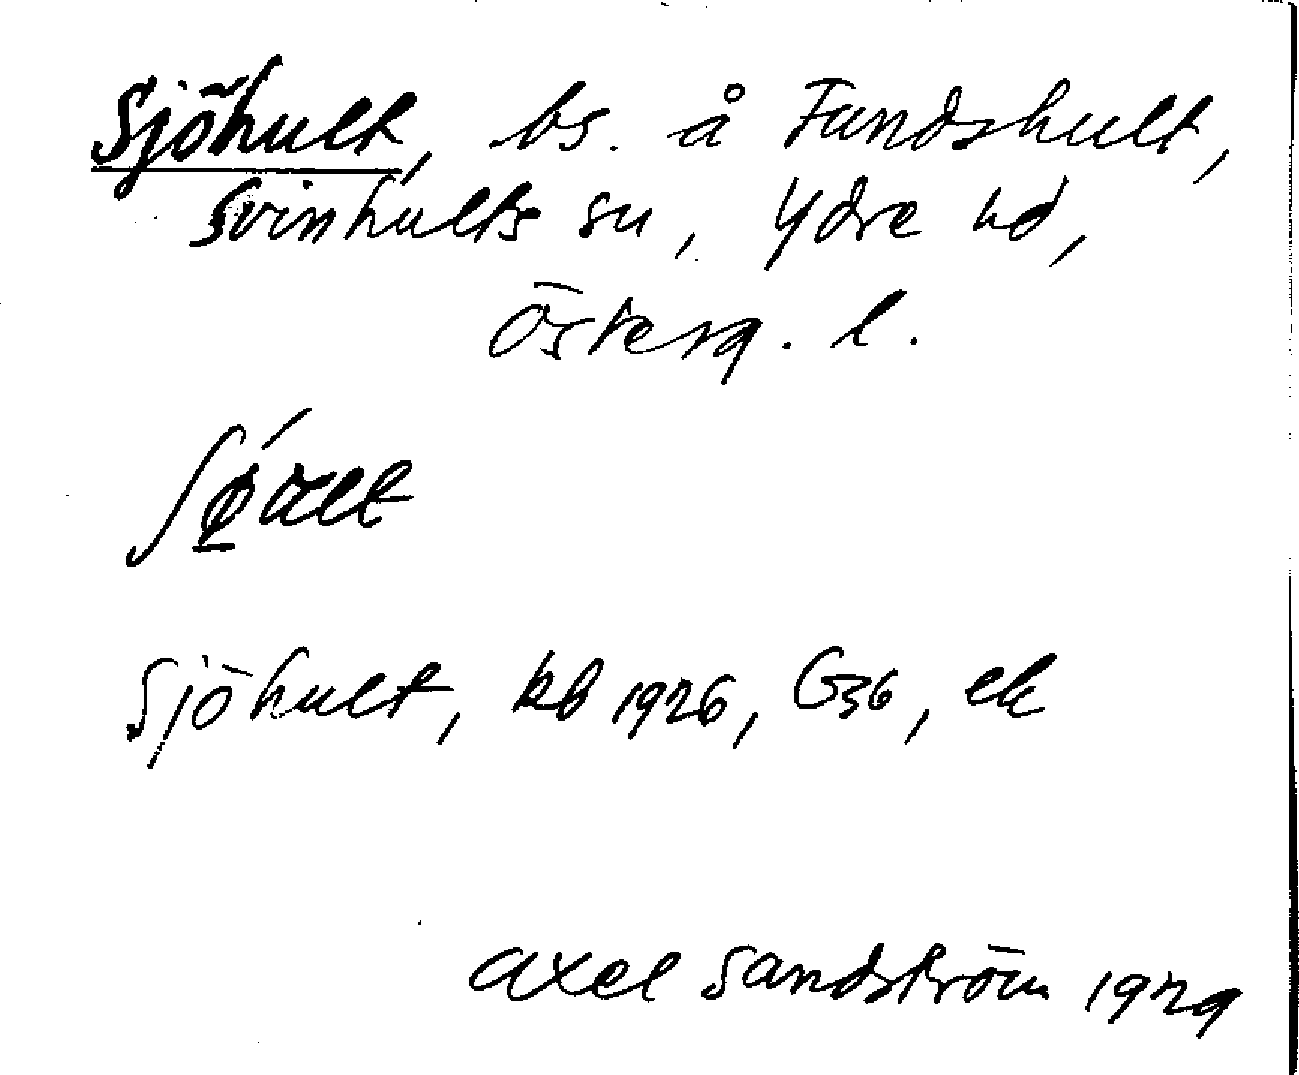 Sjöhult, bs. å Fundshult,
Svinhults sn, Ydre hd,
Österg. l.
Sjöhult, kb 1926, G36, ek
Axel Sandström 1929